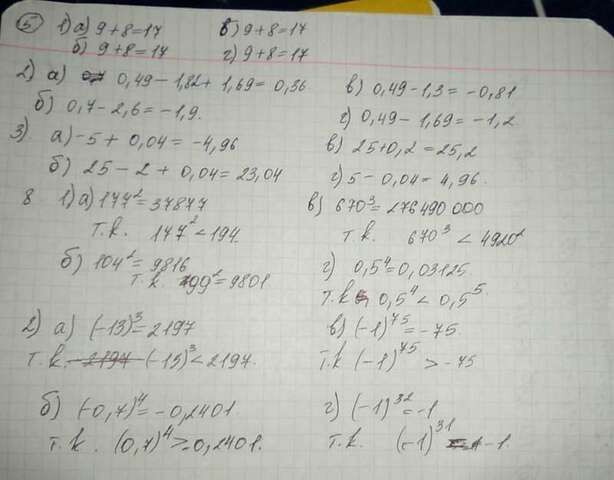 5 1) а) 9+8=17 в) 9+8=17
б) 9+8=17 г) 9+8=17
2) а) 0,49-1,82+1,69=0,36 в) 0,49-1,3=-0,81
б) 0,7-2,6=-1,9. г) 0,49-1,69=-1,2
3) а) -5+0,04=-4,96 в) 25+0,2=25,2
б) 25-2+0,04=23,04 г) 5-0,04=4,96.
8 1) а) 177²=37877 в) 670³=276490000
т.к. 177²<194. т.к. 670³<4920²
б) 104²=9816 г) 0,5⁴=0,03125
т.к. 99²=9801 т.к 0,5⁴<0,5⁵
2) а) (-13)³=2197 в) (-1)⁷⁵=-75.
т.к. (-15)³<2197. т.к (-1)⁷⁵>-75
б) (-0,7)⁴=-0,2401. г) (-1)³²=-1
т.к. (0,7)⁴>-0,2401. т.к. (-1)³¹ -1.